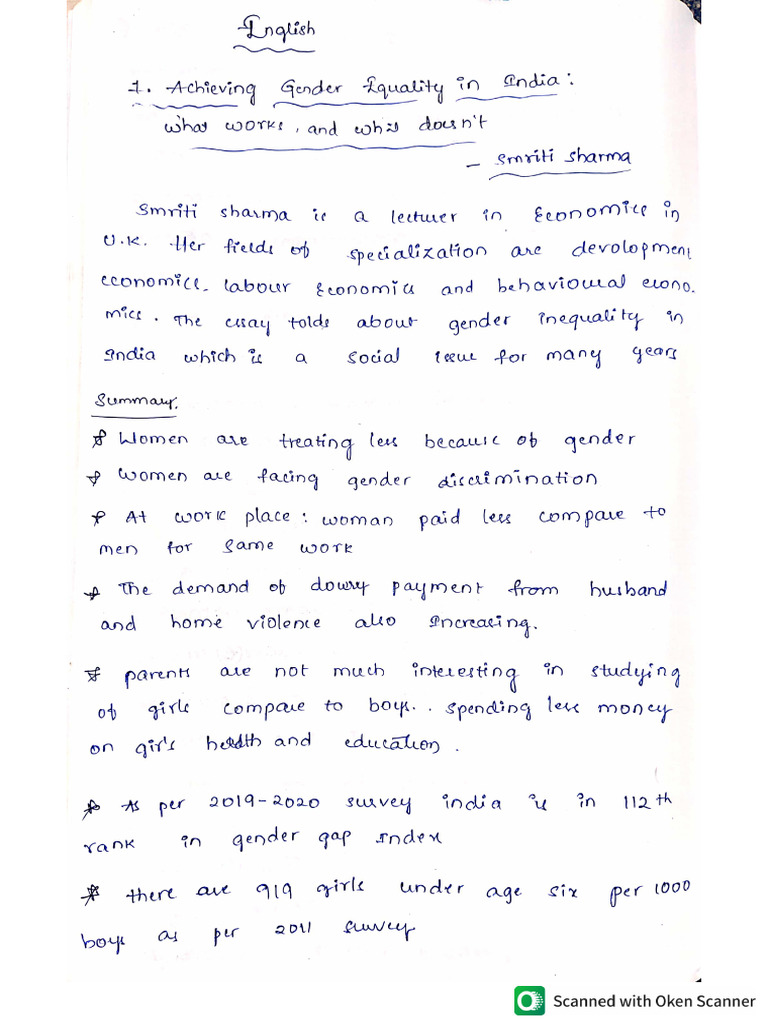 English
1. Achieving Gender Equality in India:
what works, and what doesn't
- Smriti Sharma
Smriti sharma is a lecturer in Economics in
U.K. Her fields of specialization are devolopment
economics. labour Economics and behavioural econo.
mics. The essay tolds about gender inequality in
India which is a social issue for many years
Summary.
* Women are treating less because of gender
* Women are facing gender discrimination
* At work place: woman paid less compare to
men for same work
* The demand of dowry payment from husband
and home violence also Increasing.
* parents are not much interesting in studying
of girls compare to boys.. spending less money
on girl's health and education.
* As per 2019-2020 survey india is in 112th
rank in gender gap Index
* there are 919 girls under age six per 1000
boys as per 2011 survey
Scanned with Oken Scanner